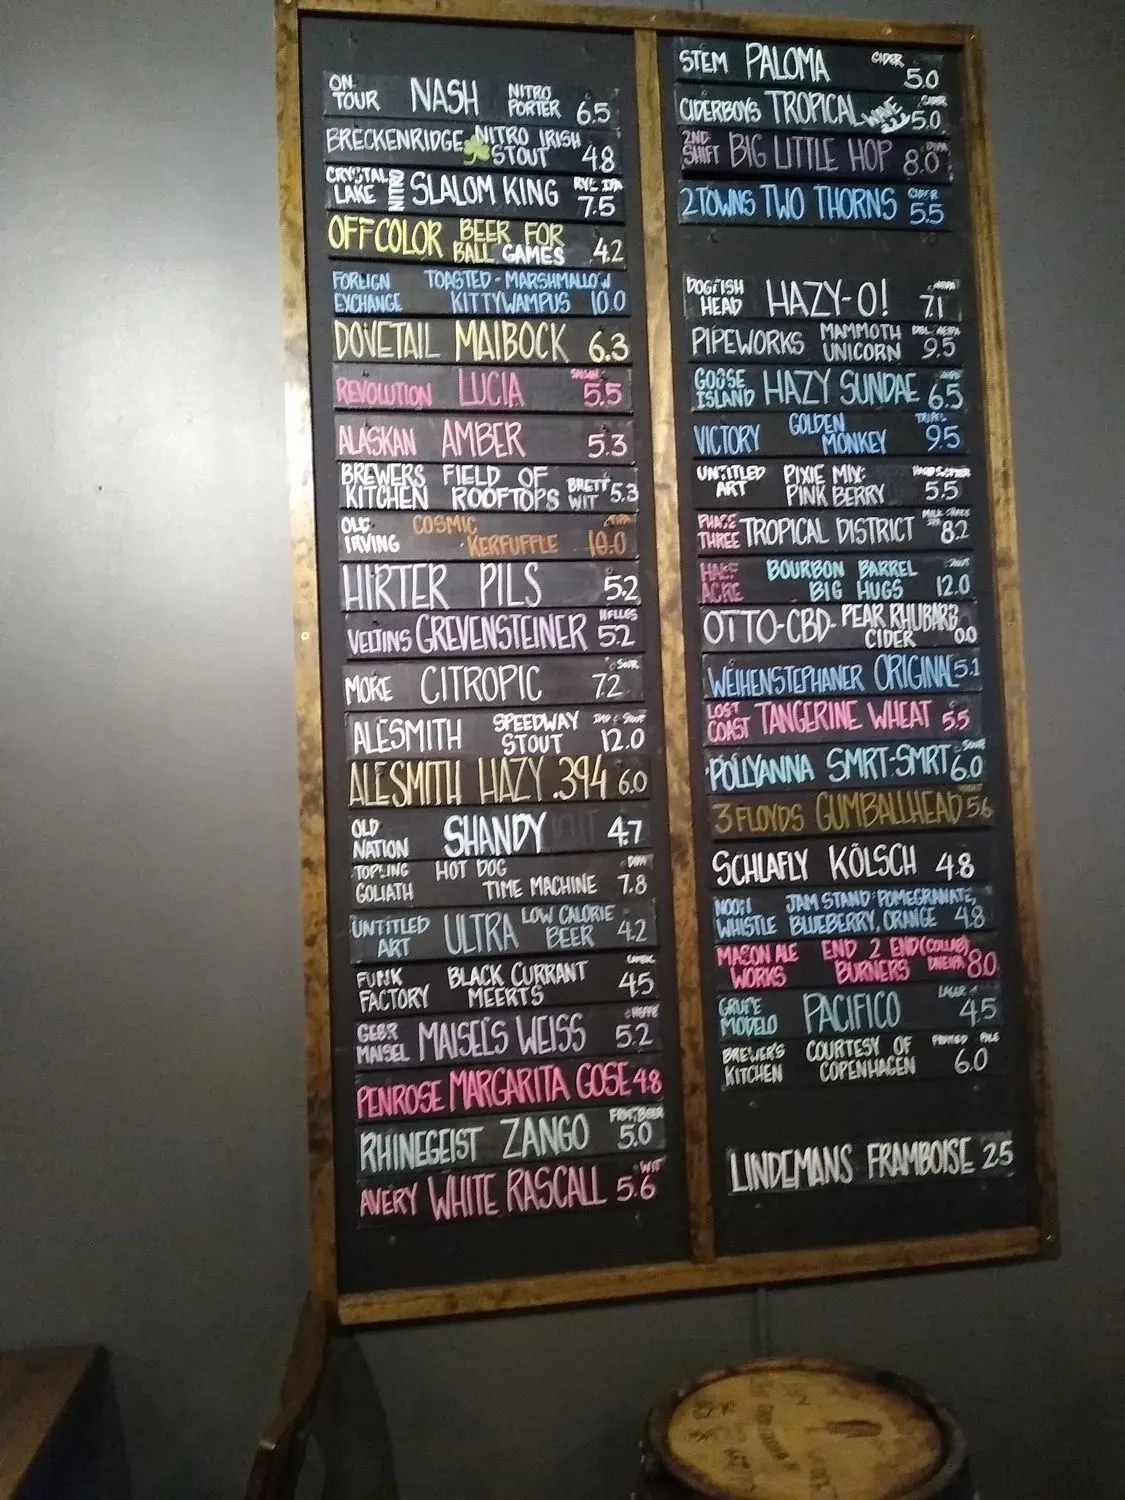 ON TOUR NASH NITRO PORTER 6.5
BRECKENRIDGE NITRO IRISH STOUT 4.8
CRYSTAL LAKE NITRO SLALOM KING RYE IPA 7.5
OFF COLOR BEER FOR BALL GAMES 4.2
FOREIGN EXCHANGE TOASTED-MARSHMALLOW KITTYWAMPUS 10.0
DOVETAIL MAIBOCK 6.3
REVOLUTION LUCIA SAISON 5.5
ALASKAN AMBER 5.3
BREWERS KITCHEN FIELD OF ROOFTOPS BRETT WIT 5.3
OLD IRVING COSMIC KERFUFFLE 10.0
HIRTER PILS 5.2
VELTINS GREVENSTEINER HELLES 5.2
MORE CITROPIC SOUR 7.2
ALESMITH SPEEDWAY STOUT IMP. STOUT 12.0
ALESMITH HAZY .394 6.0
OLD NATION SHANDY 4.7
TOPLING GOLIATH HOT DOG TIME MACHINE DIPA 7.8
UNTITLED ART ULTRA LOW CALORIE BEER 4.2
FUNK FACTORY BLACK CURRANT MEERTS LAMBIC 4.5
GEBR MAISEL MAISEL'S WEISS HEFFE 5.2
PENROSE MARGARITA GOSE 4.8
RHINEGEIST ZANGO FRUIT BEER 5.0
AVERY WHITE RASCALL WIT 5.6
STEM PALOMA CIDER 5.0
CIDERBOYS TROPICAL WAVE CIDER 5.0
2ND SHIFT BIG LITTLE HOP DIPA 8.0
2 TOWNS TWO THORNS CIDER 5.5
DOGFISH HEAD HAZY-O! 7.1
PIPEWORKS MAMMOTH UNICORN 9.5
GOOSE ISLAND HAZY SUNDAE 6.5
VICTORY GOLDEN MONKEY TRIPEL 9.5
UNTITLED ART PIXIE MIX: PINK BERRY HARD SELTZER 5.5
PHASE THREE TROPICAL DISTRICT MILK SHAKE IPA 8.2
HALF ACRE BOURBON BARREL BIG HUGS STOUT 12.0
OTTO-CBD-PEAR RHUBARB CIDER 0.0
WEIHENSTEPHANER ORIGINAL 5.1
LOST COAST TANGERINE WHEAT 5.5
POLLYANNA SMRT-SMRT SOUR 6.0
3 FLOYDS GUMBALLHEAD WHEAT 5.6
SCHLAFLY KÖLSCH 4.8
NOON WHISTLE JAM STAND: POMEGRANATE, BLUEBERRY, ORANGE 4.8
MASON ALE WORKS END 2 END (COLLAB) BURNERS DNEIPA 8.0
GRUPE MODELO PACIFICO LAGER 4.5
BREWER'S KITCHEN COURTESY OF COPENHAGEN FRUITED PALE 6.0
LINDEMANS FRAMBOISE 2.5